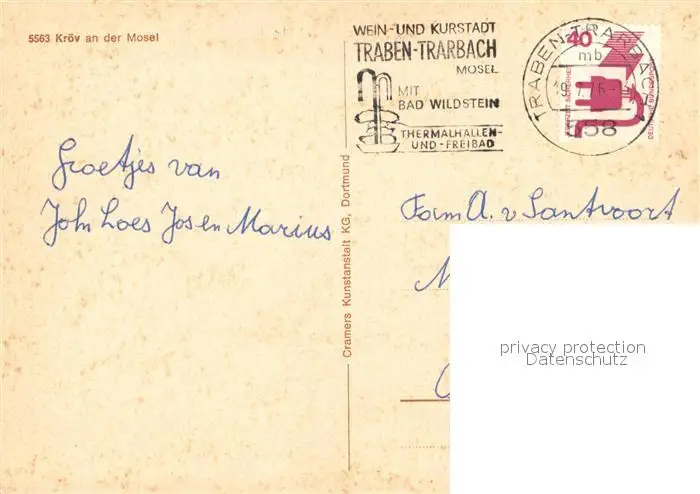 5563 Kröv an der Mosel
WEIN- UND KURSTADT
TRABEN-TRARBACH
MOSEL
MIT
BAD WILDSTEIN
THERMALHALLEN-
UND-FREIBAD
TRABEN-TRARBACH 1
mb
558
40
DEUTSCHE BUNDESPOST
Groetjes van
John Loes Jos en Marius
Cramers Kunstanstalt KG, Dortmund
Fam A. v Santvoort
privacy protection
Datenschutz